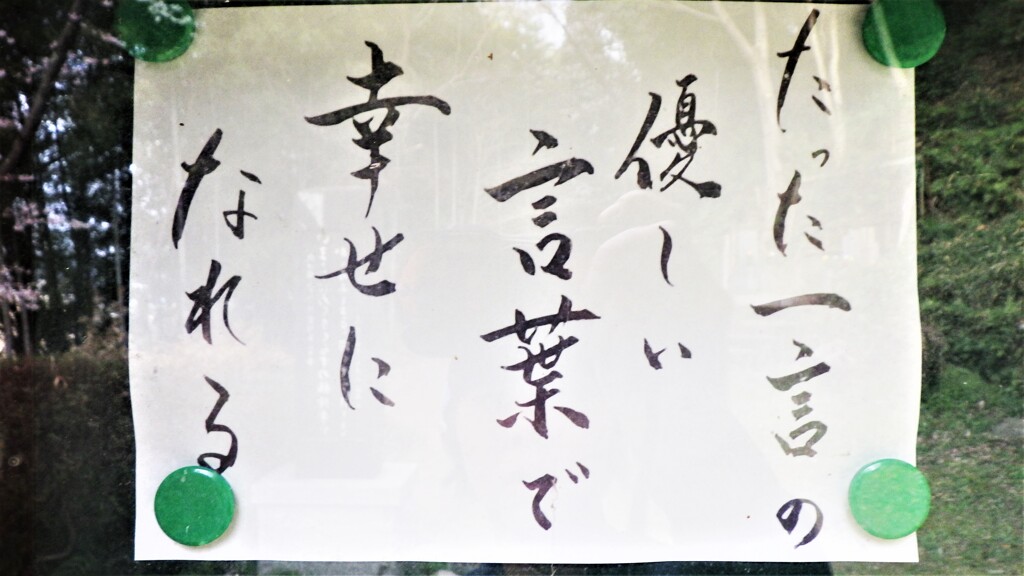 たった一言の
優しい
言葉で
幸せに
なれる